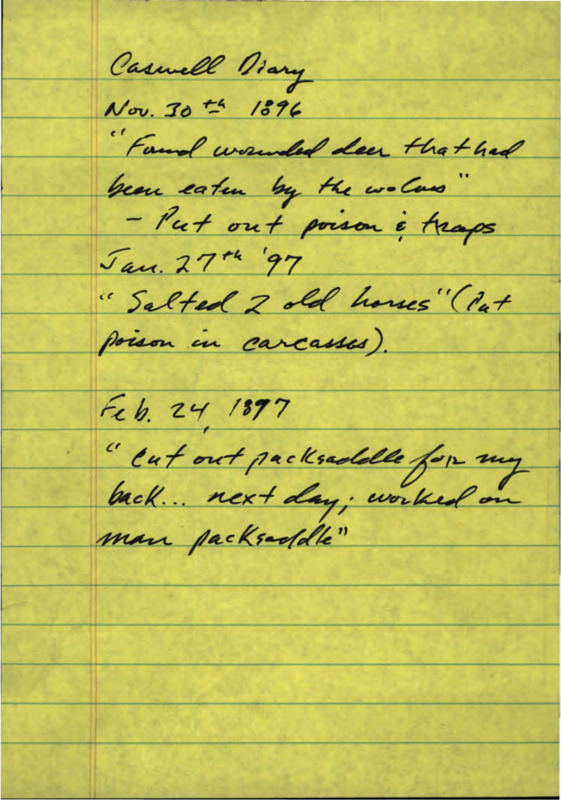 Caswell Diary
Nov. 30th 1896
"Found wounded deer that had
been eaten by the wolves"
- Put out poison & traps
Jan. 27th '97
"Salted 2 old horses" (Put
poison in carcasses).
Feb. 24, 1897
"Cut out packsaddle for my
back... next day; worked on
man packsaddle"